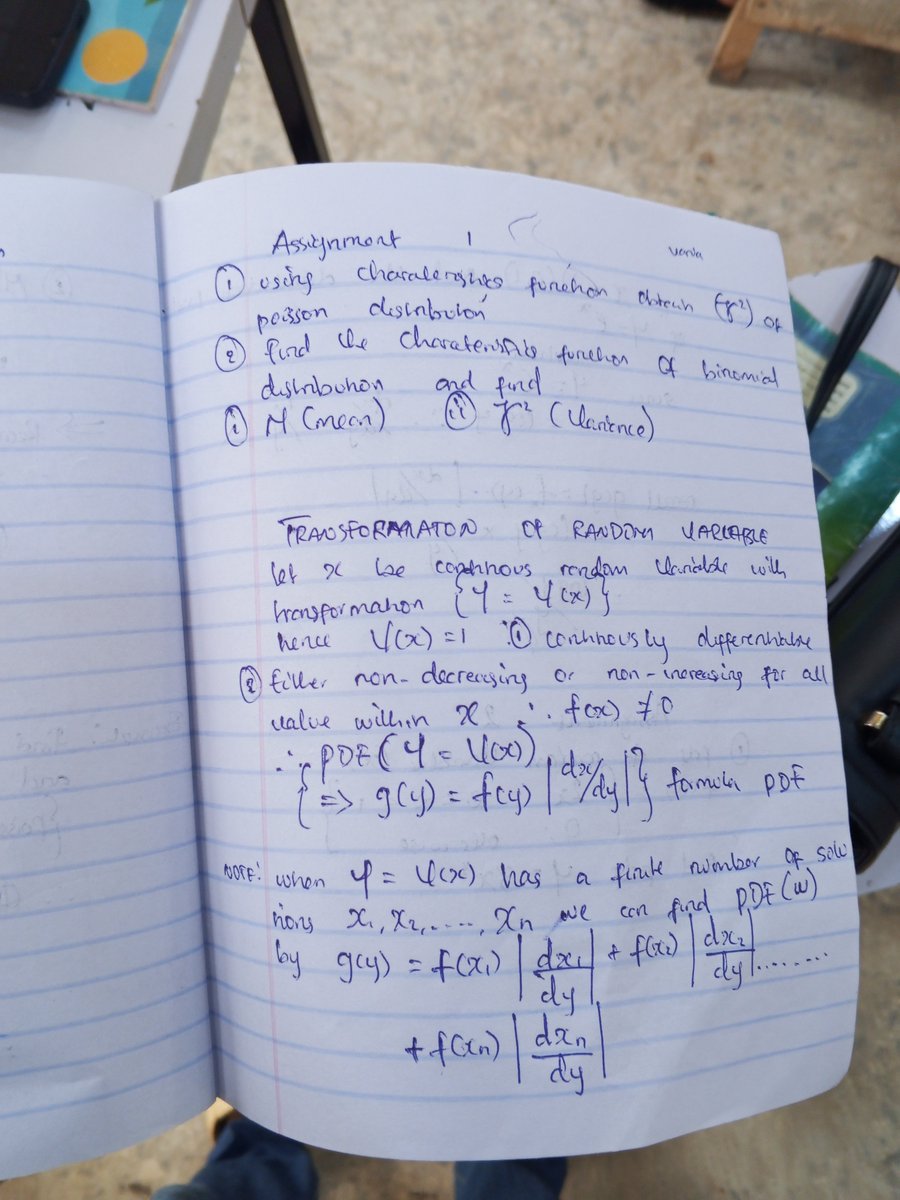 Assignment 1
① using charateristics function obtain (σ²) of
poisson distribution
② find the charateristics function of binomial
distribution and find
① M (mean) ② σ² (Varience)
TRANSFORMATON OF RANDOM VARIABLE
let x be continous random Variable with
transformation {Y = Ψ(x)}
hence Ψ(x) = 1 ∴ ① continously differentiable
② Either non-decreasing or non-increasing for all
value within x ∴ f(x) ≠ 0
∴ PDF (Y = Ψ(x))
{=> g(y) = f(y) |dx/dy|} formula PDF
NOTE: when Y = Ψ(x) has a finite number of solu
tions x₁, x₂, ...., xn we can find PDF(w)
by g(y) = f(x₁) |dx₁/dy| + f(x₂) |dx₂/dy| ........
+ f(xn) |dxn/dy|